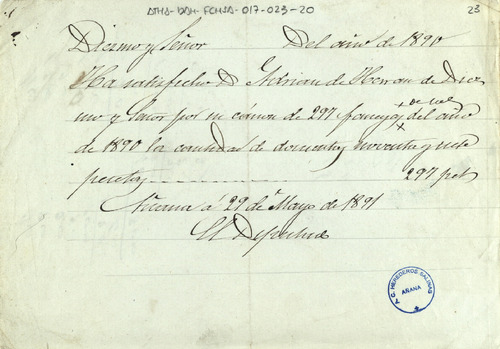 ATHA-DAH-FCHSA-017-023-20
23
Diezmo y Señor Del año de 1890
Ha satisfecho D. Adrian de Herran de Diez
mo y Señor por su comun de 297 fanegas + del año
+ de sal
de 1890 la cantidad de doscientas noventa y siete
pesetas 297 pst
Añana á 29 de Mayo de 1891
El
T.G. HEREDEROS SALINAS
AÑANA